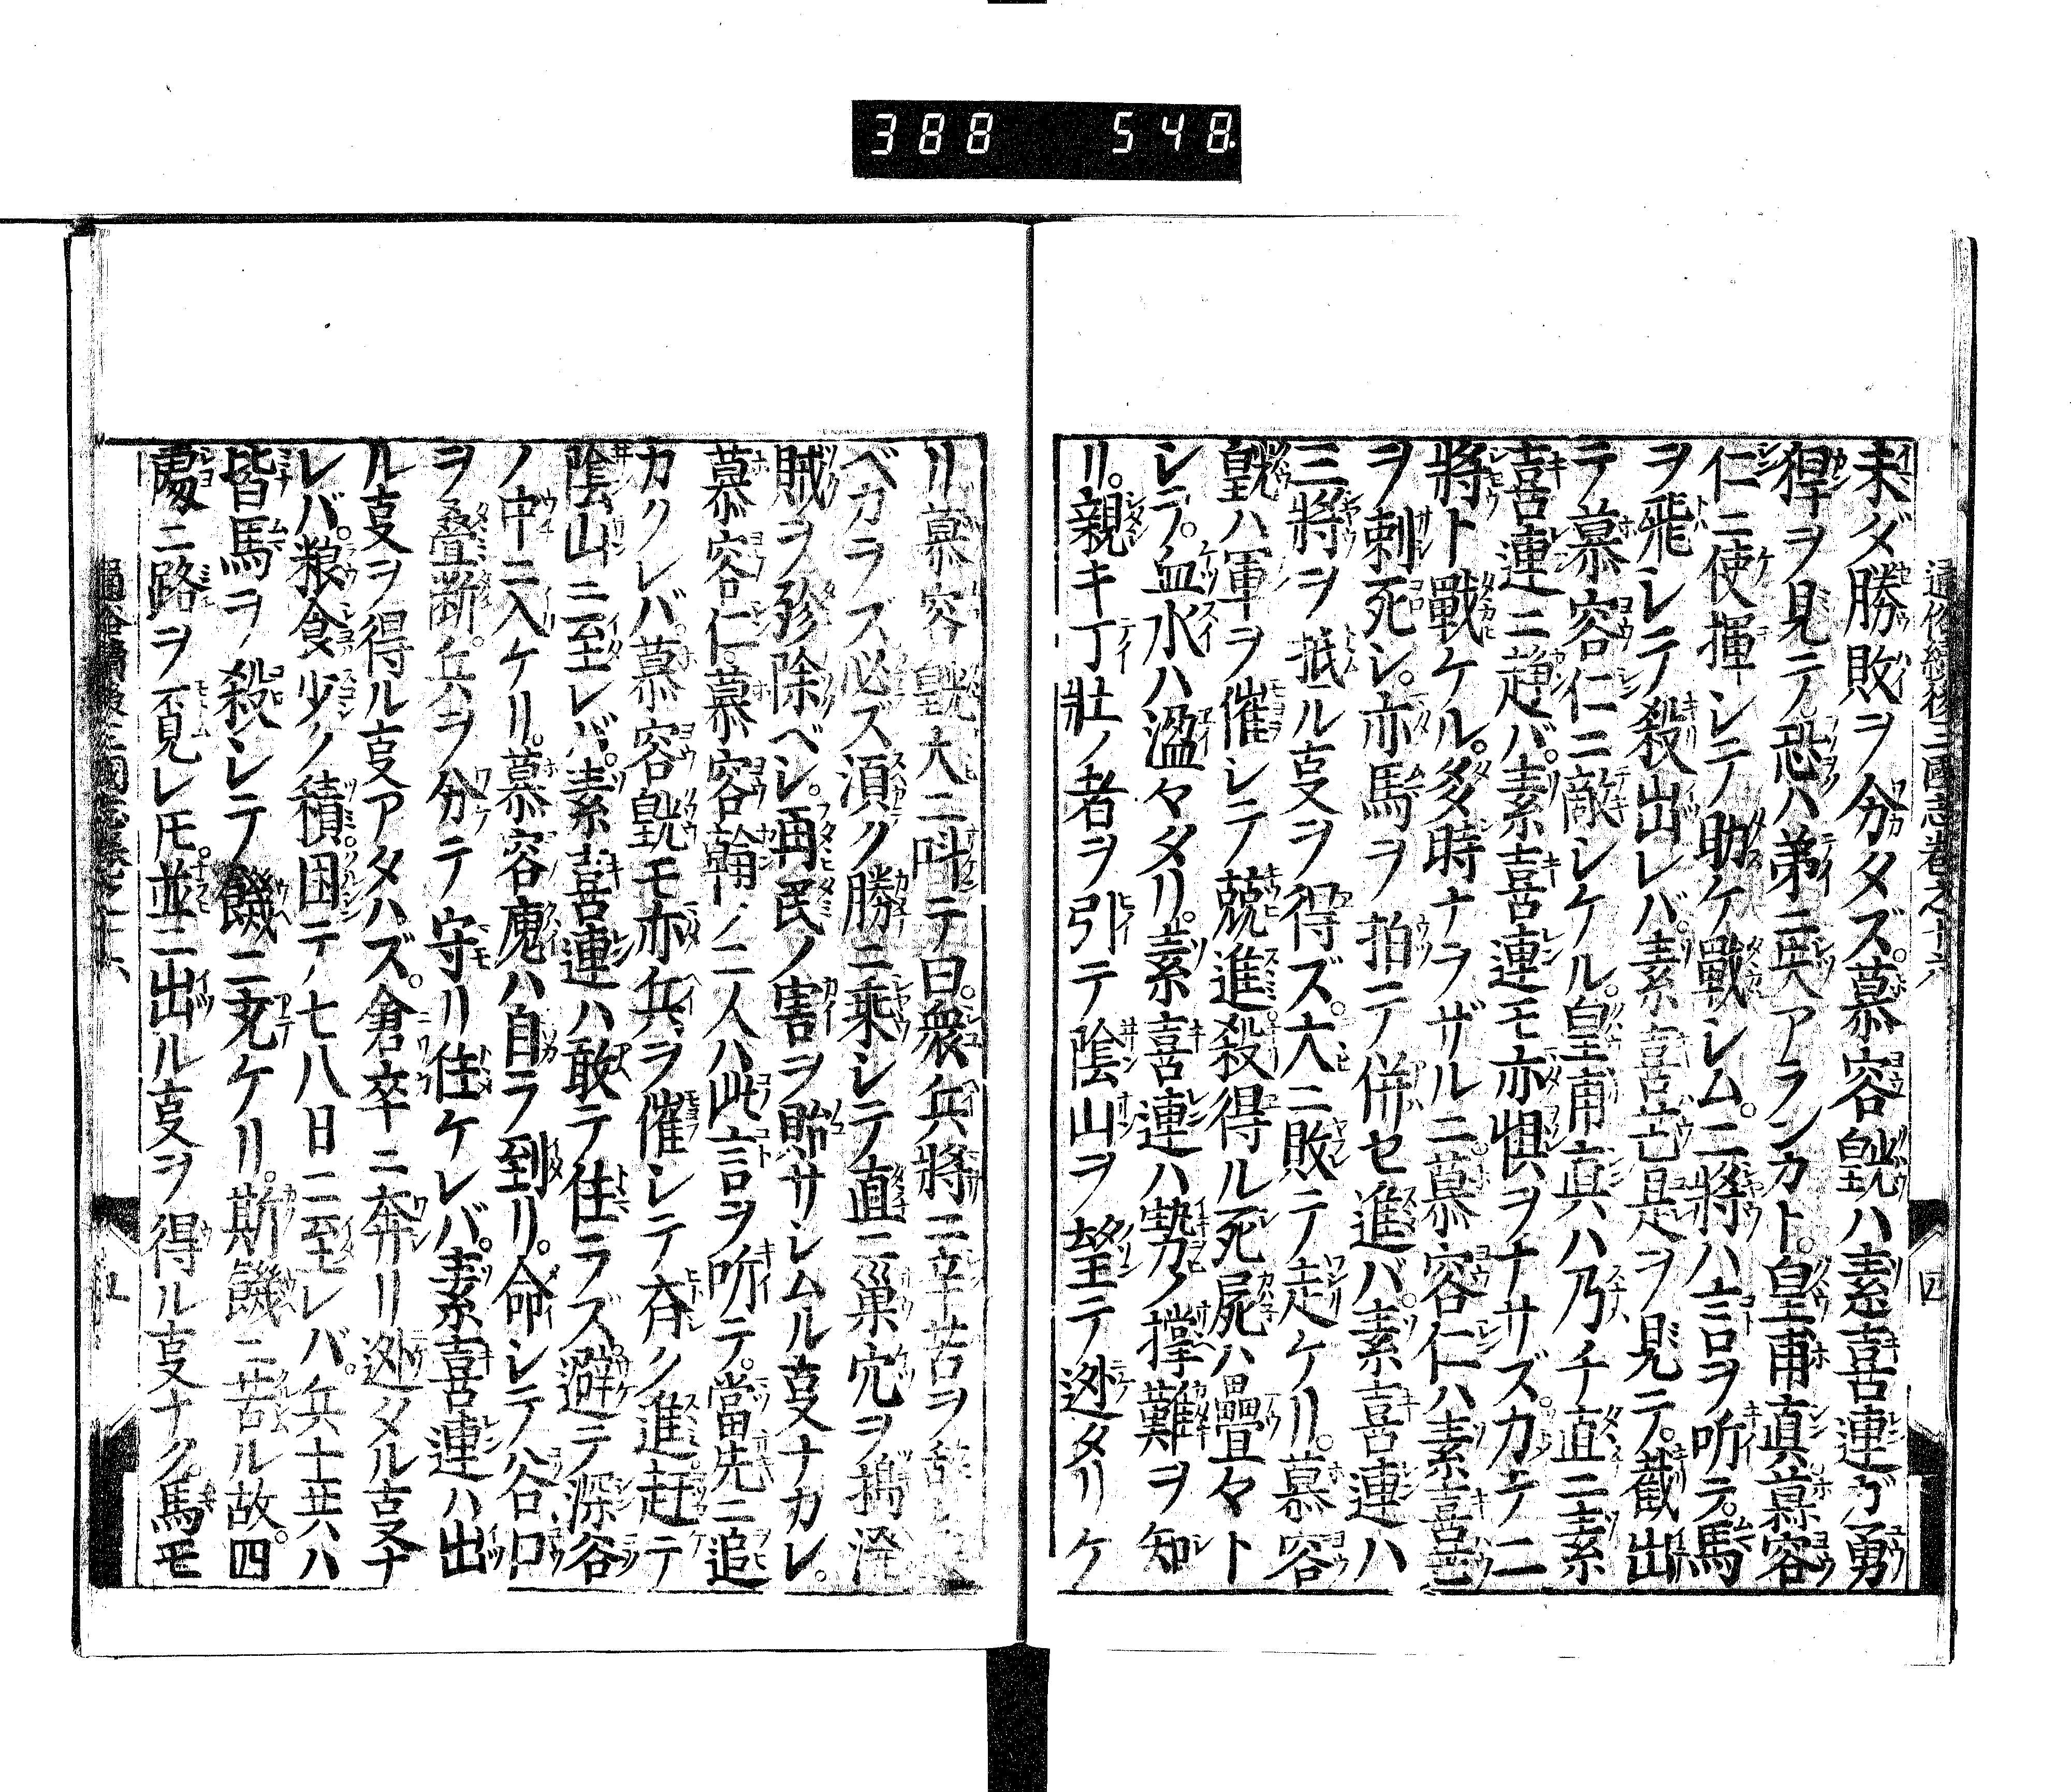 388 548
通俗續後三國志卷之十六
四
未ダ勝敗ヲ分タズ。慕容皝ハ素喜連ガ勇
猂ヲ見テ。恐ハ弟ニ失アランカト。皇甫真慕容
仁ニ使揮シテ助ケ戰シム。二將ハ言ヲ听テ。馬
ヲ飛シテ殺出レバ。素喜亡是ヲ見テ。截出
テ慕容仁ニ敵シケル。皇甫真ハ乃チ直ニ素
喜連ニ趕バ。素喜連モ亦惧ヲナサズ。力テ二
將ト戰ケル。多時ナラザルニ。慕容仁ハ素喜亡
ヲ刺死シ。亦馬ヲ拍テ併セ進バ。素喜連ハ
三將ヲ抵ル叓ヲ得ズ。大ニ敗テ走ケリ。慕容
皝ハ軍ヲ催シテ競進。殺得ル死屍ハ疊々ト
シテ。血水ハ溢々タリ。素喜連ハ勢ノ撑難ヲ知
リ。親キ丁壯ノ者ヲ引テ陰山ヲ望テ迯タリケ
リ慕容皝大ニ呌テ曰。衆兵將ニ辛苦ヲ
ベカラズ必ズ須ク勝ニ乘シテ直ニ巢穴ヲ搗
賊ヲ殄除ベシ。再民ノ害ヲ貽サシムル叓ナカレ。
慕容仁。慕容翰ノ二人ハ此言ヲ听テ。當先ニ追
カクレバ。慕容皝モ亦兵ヲ催シテ斉ク進。赶テ
陰山ニ至レバ。素喜連ハ敢テ住ラズ。避テ深谷
ノ中ニ入ケリ。慕容廆ハ自ラ到リ。命シテ谷口
ヲ叠断。兵ヲ分テ守リ住ケレバ。素喜連ハ出
ル叓ヲ得ル叓アタハズ。倉卒ニ奔リ迯タル叓ナ
レバ。粮食少ノ積。困テ七八日ニ至レバ。兵士共ハ
皆馬ヲ殺シテ饑ニ充ケリ。斯饑ニ苦ル故。四
處ニ路ヲ覔レ𪜈。並ニ出ル叓ヲ得ル叓ナク。馬モ